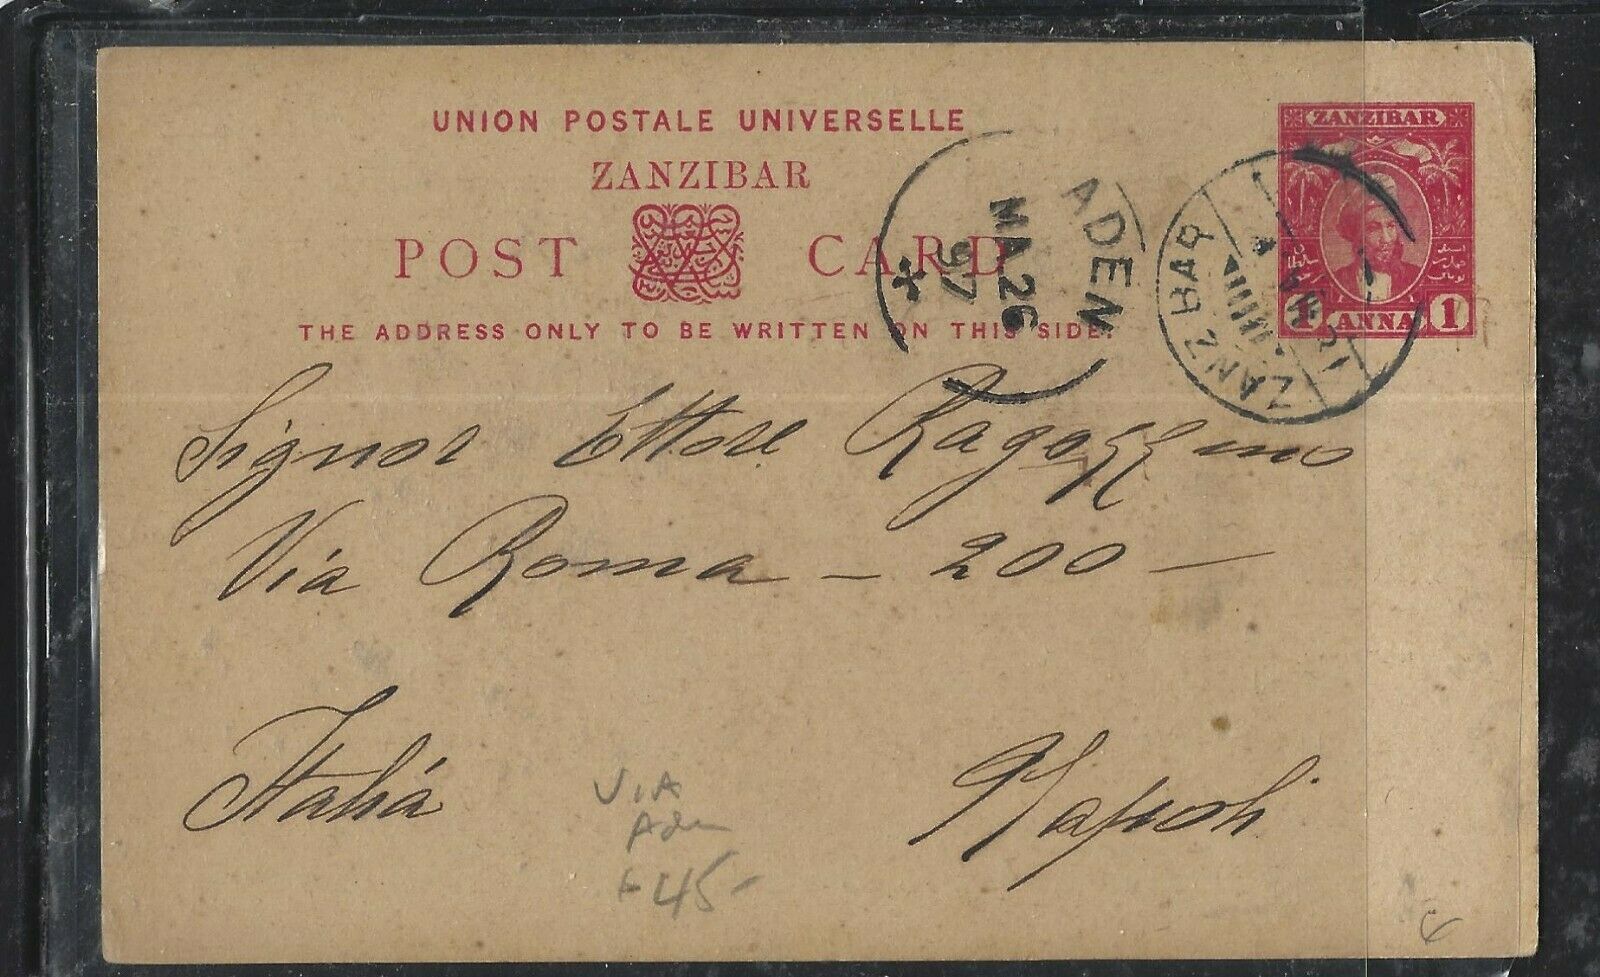 UNION POSTALE UNIVERSELLE
ZANZIBAR
POST CARD
THE ADDRESS ONLY TO BE WRITTEN ON THIS SIDE.
ZANZIBAR
1 ANNA 1
ADEN
MA.26
97
ZANZIBAR
Signor Ettore Ragozzino
Via Roma - 200 -
Italia
Napoli
VIA
Aden
45-